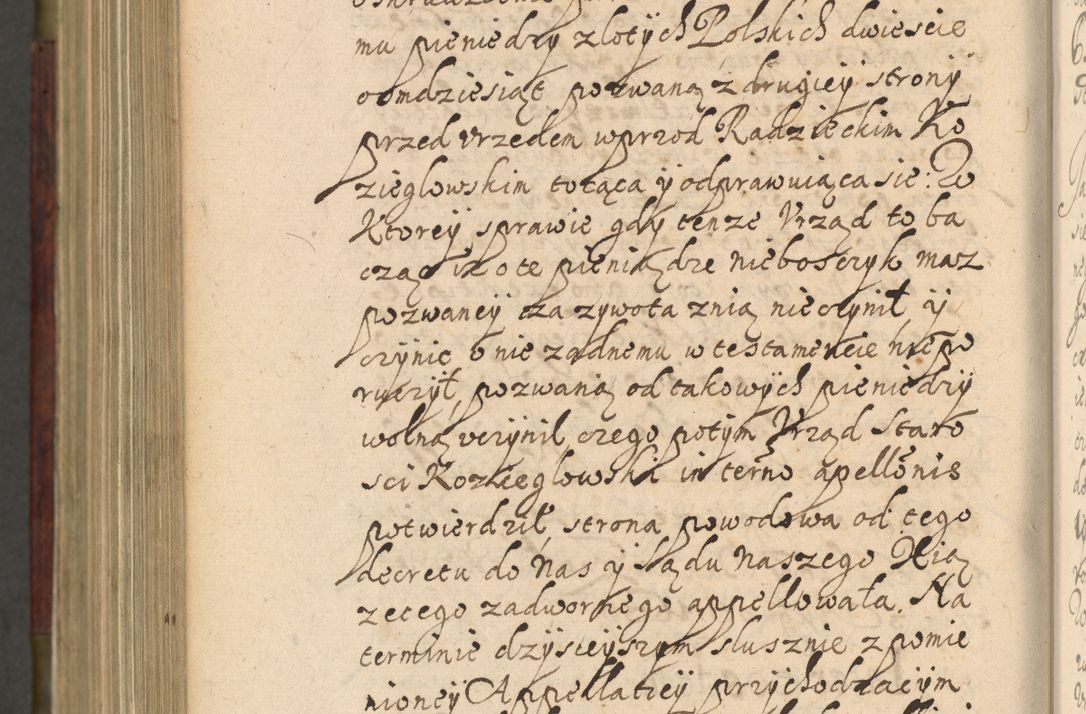 mu pieniedzy zlotych Polskich dwiescie
osmdziesiąt pozwaną z drugiey strony
przed vrzedem wprzod Radzieckim Ko
zieglowskim toczącą y odprawuiącasie: W
Ktorey sprawie gdy tenze Vrząd to ba
cząc iz o te pieniądze nieboszczyk maz
pozwaney za zywota znią nieczynił y
czynic o nie zadnemu w testamencie niepo
ruczył, pozwaną od takowych pieniedzy
wolną vczynil czego potym Vrząd Staro
sci Kozieglowski in termo apellonis
potwierdził, strona powodowa od tego
decretu do Nas y Sądu Naszego Xią
zecego zadwornego appellowała. Na
terminie dzysieyszym slusznie z pomie
nioney Appellatiey przychodzacym